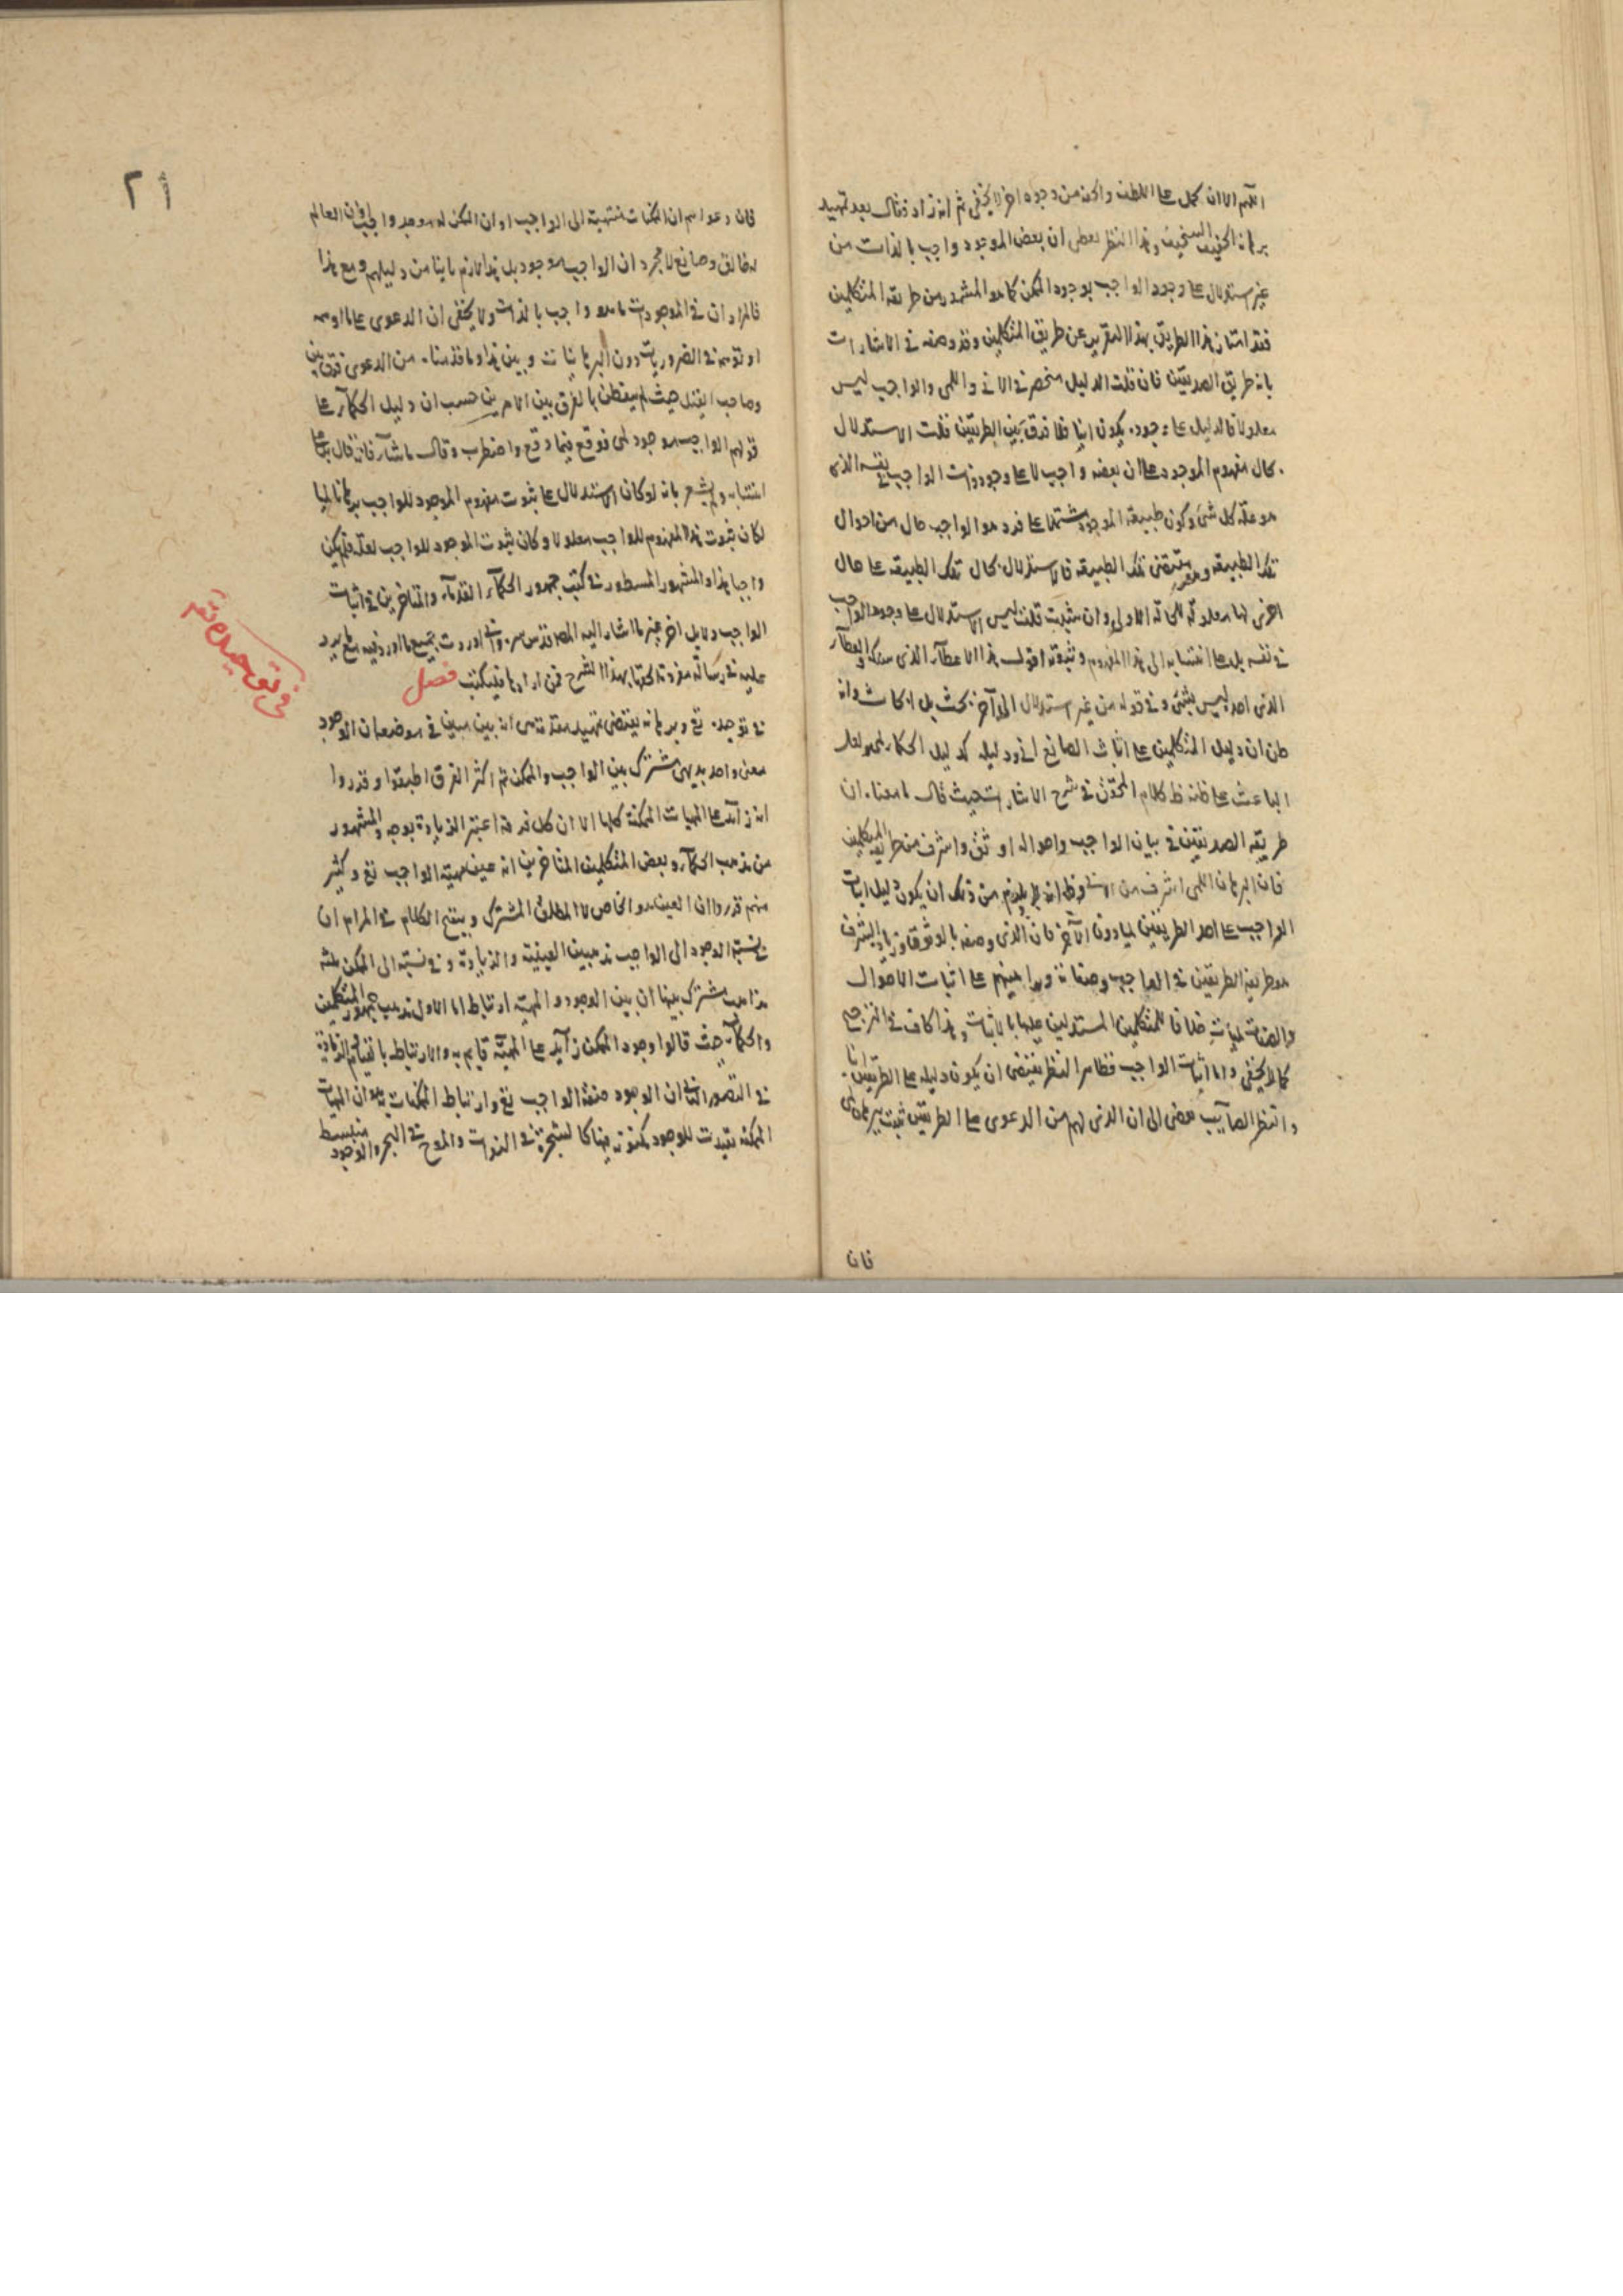 اللهم الا ان يحمل على اللطف واكثر من وجوه اخر لا يخفى ثم انه زاد فقال بعد تمهيد
برهانه الخفيف السخيف وهذا النظر يعطى ان بعض الموجود واجب بالذات من
غير استدلال على وجود الواجب بوجود الممكن كما هو المشهور من طريقة المتكلمين
فقد امتاز هذا الطريق بهذا التقرير عن طريق المتكلمين وقد وصفه فى الاشارات
بانه طريق الصديقين فان قلت الدليل منحصر فى الانى واللمى والواجب ليس
معلولا فالدليل على وجوده يكون انيا فلا فرق بين الطريقين قلت الاستدلال
بحال مفهوم الموجود على ان بعضه واجب لا على وجود ذات الواجب فى نفسه الذى
هو علة كل شئ وكون طبيعة الموجود مشتملا على فرد هو الواجب حال من احوال
تلك الطبيعة ومقتضى تلك الطبيعة فالاستدلال بحال تلك الطبيعة على حال
اخرى لها معلولة للحالة الاولى وان شئت قلت ليس الاستدلال على وجود الواجب
فى نفسه بل على انتسابه الى هذا المفهوم وثبوته له اقول هذا الاعطاء الذى
الذى احد ليس بشئ وفى قوله من غير استدلال الى آخره بحث بل ابحاث وانه
ظن ان دليل المتكلمين على اثبات الصانع انى ودليله كدليل الحكماء لمى ولعل
الباعث على ظنه ظاهر كلام المحقق فى شرح الاشارات حيث قال ما معناه ان
طريقة الصديقين فى بيان الواجب واحواله اوثق واشرف من طريقة المتكلمين
فان البرهان اللمى اشرف من الانى وظاهر انه لا يلزم من ذلك ان يكون دليل اثبات
الواجب على احد الطريقين لميا دون الآخر فان الذى وصفه بالوثوق وزيادة الشرف
هو طريق الطريقين فى الواجب وصفاته وبراهينهم على اثبات الاحوال
والصفات لميات خلافا للمتكلمين المستدلين عليها بالانيات وهذا كاف فى الترجيح
كما لا يخفى واما اثبات الواجب فظاهر النظر يقتضى ان يكون دليله على الطريقين انيا
والنظر الصايب يفضى الى ان الذى لهم من الدعوى على الطريقين ثبت ببرهان لمى
فان
٢١
فان دعواهم ان الممكنات منتهية الى الواجب او ان الممكن له موجد واجب او ان العالم
له خالق وصانع لا مجرد ان الواجب موجود بل هذا لازم ما بينا من دليلهم ومع هذا
فالمراد ان فى الموجودات ما هو واجب بالذات ولا يخفى ان الدعوى على ما
او توهم فى الضروريات دون البرهانيات وبين هذا وما قدمناه من الدعوى فرق بين
وصاحب القيل حيث لم يتفطن بالفرق بين الامرين حسب ان دليل الحكماء على
قولهم الواجب موجود لمى فوقع فيما وقع واضطرب وقال ما شاء فانه قال
انتسابه ولم يشعر بانه لو كان الاستدلال على ثبوت مفهوم الموجود للواجب برهانا لميا
لكان ثبوت هذا المفهوم للواجب معلولا وكان ثبوت الموجود للواجب لعلة فلم يكن
واجبا هذا والمشهور المسطور فى كتب جمهور الحكماء القدماء والمتأخرين فى اثبات
الواجب دلايل اخر غير ما اشار اليه المص قدس سره وانى اوردت جميع ما اورد فيه مع ما يرد
عليه فى رسالة مفردة الحقتها بهذا الشرح فمن ارادها فليكتب فصل
فى توحيده تع وبرهانه يقتضى تمهيد مقدمة هى انه بين مبين فى موضعه ان الوجود
معنى واحد بديهى مشترك بين الواجب والممكن ثم اكثر الفرق اطبقوا وقرروا
انه زائد على المهيات الممكنة كلها الا ان كل فرقة اعتبر الزيادة بوجه والمشهور
من مذهب الحكماء وبعض المتكلمين المتأخرين انه عين مهية الواجب تع وكثير
منهم قرروا ان العين هو الخاص لا المطلق المشترك وينقح الكلام فى المرام ان
فى نسبة الوجود الى الواجب مذهبين العينية والزيادة وفى نسبته الى الممكن ثلثة
مذاهب مشترك بينها ان بين الوجود والمهية ارتباط اما الاول مذهب جمهور المتكلمين
والحكماء حيث قالوا وجود الممكن زايد على المهية قايم به والارتباط بالقيام والزيادة
فى التصور الثانى ان الوجود صفة الواجب تع وارتباط الممكنات به هو ان المهيات
الممكنة قيدت للوجود مكنونة فيها كالشجرة فى النواة والموج فى البحر والوجود منبسط
فى توحيده تع